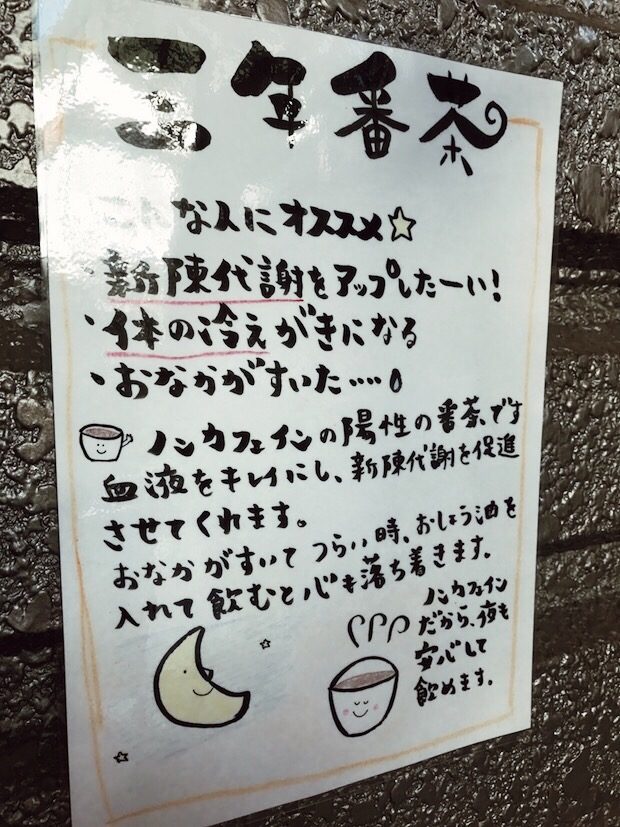 三年番茶
な人にオススメ☆
・新陳代謝をアップしたーい!
・体の冷えがきになる
・おなかがすいた……。
ノンカフェインの陽性の番茶です
血液をキレイにし、新陳代謝を促進
させてくれます。
おなかがすいてつらい時、おしょう油を
入れて飲むと心も落ち着きます。
ノンカフェイン
だから、夜も
安心して
飲めます。